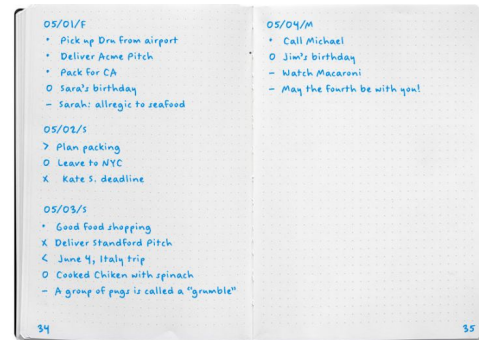 05/01/F
• Pick up Dru from airport
• Deliver Acme Pitch
• Pack for CA
O Sara's birthday
– Sarah: allregic to seafood
05/02/S
> Plan packing
O Leave to NYC
X Kate S. deadline
05/03/S
• Good food shopping
X Deliver Standford Pitch
< June 4, Italy trip
O Cooked Chiken with spinach
– A group of pugs is called a "grumble"
34
05/04/M
• Call Michael
O Jim's birthday
– Watch Macaroni
– May the fourth be with you!
35